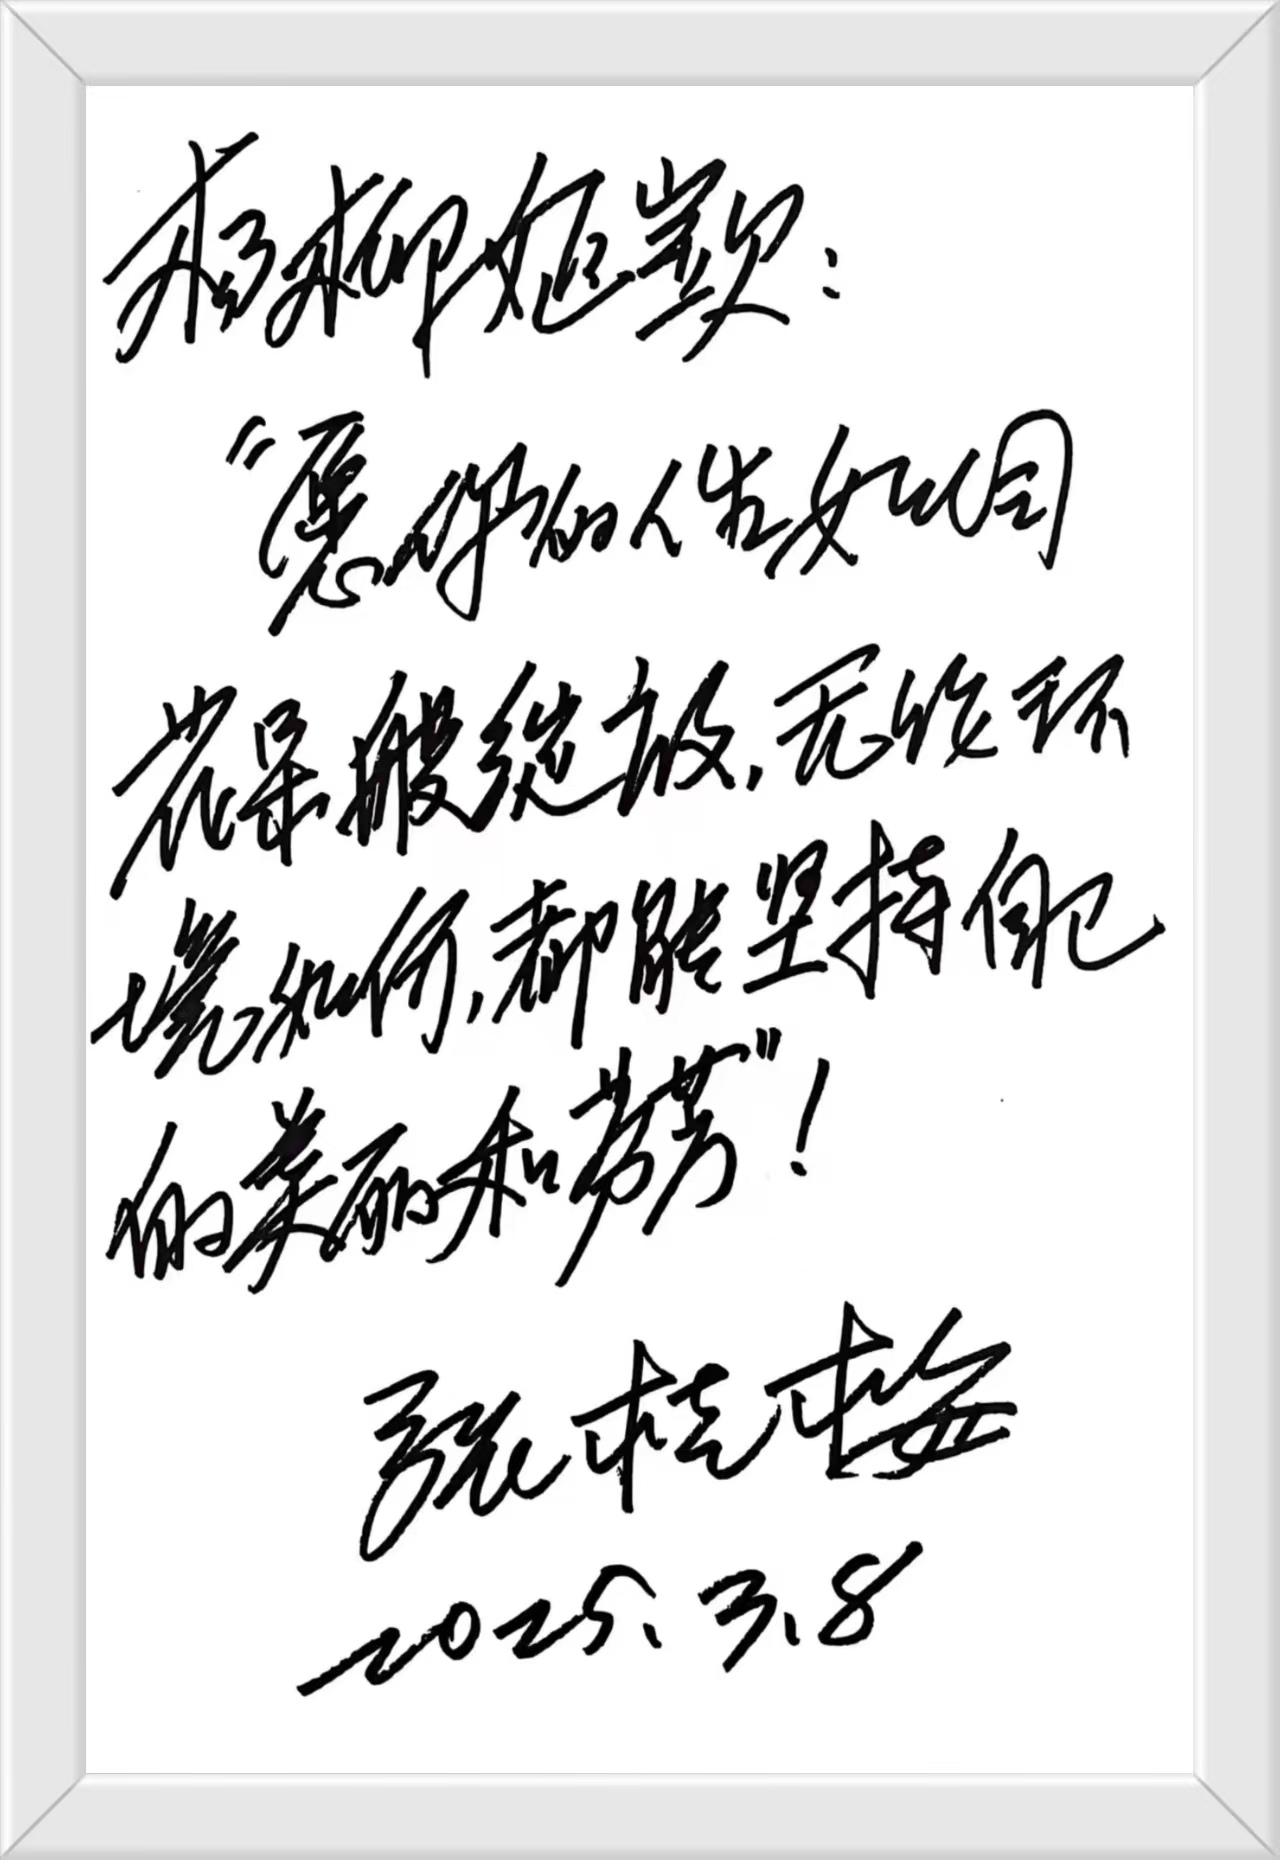 杨柳姬款：
“愿你的人生如同
花朵般绽放，无论环
境如何，都能坚持自己
的美丽和芬芳”！
张桂梅
2025.3.8